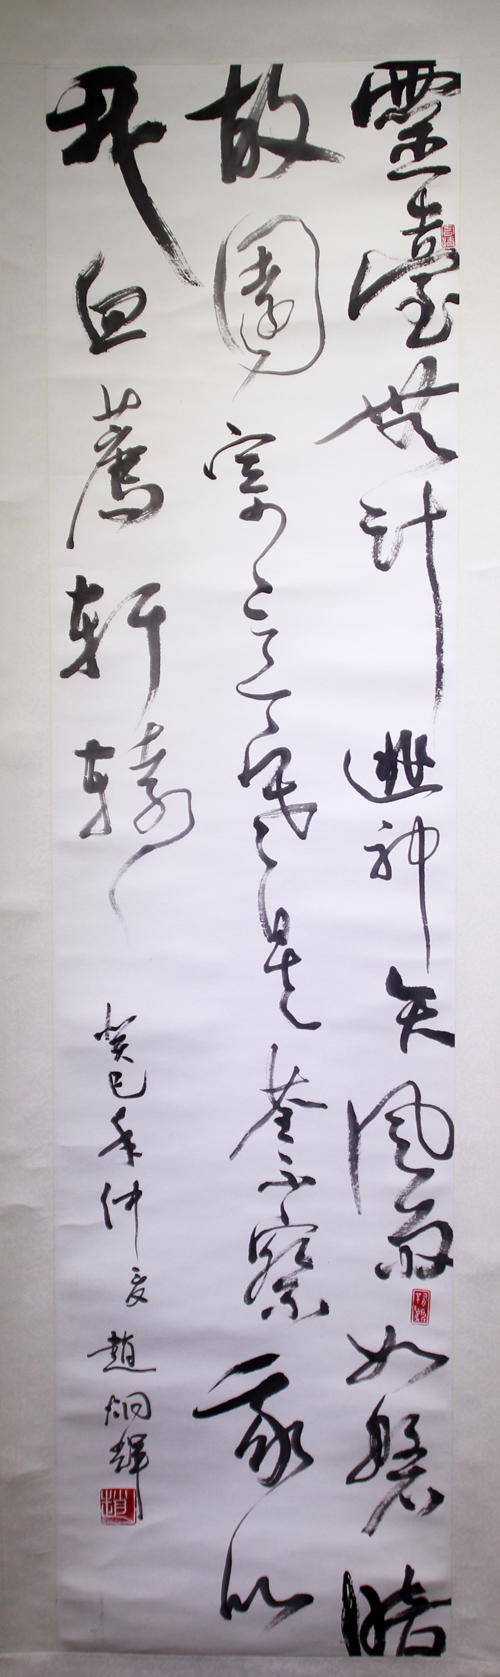 靈臺無計逃神矢風雨如磐暗
故園寄意寒星荃不察我以
我血薦軒轅
癸巳年仲夏趙炯輝